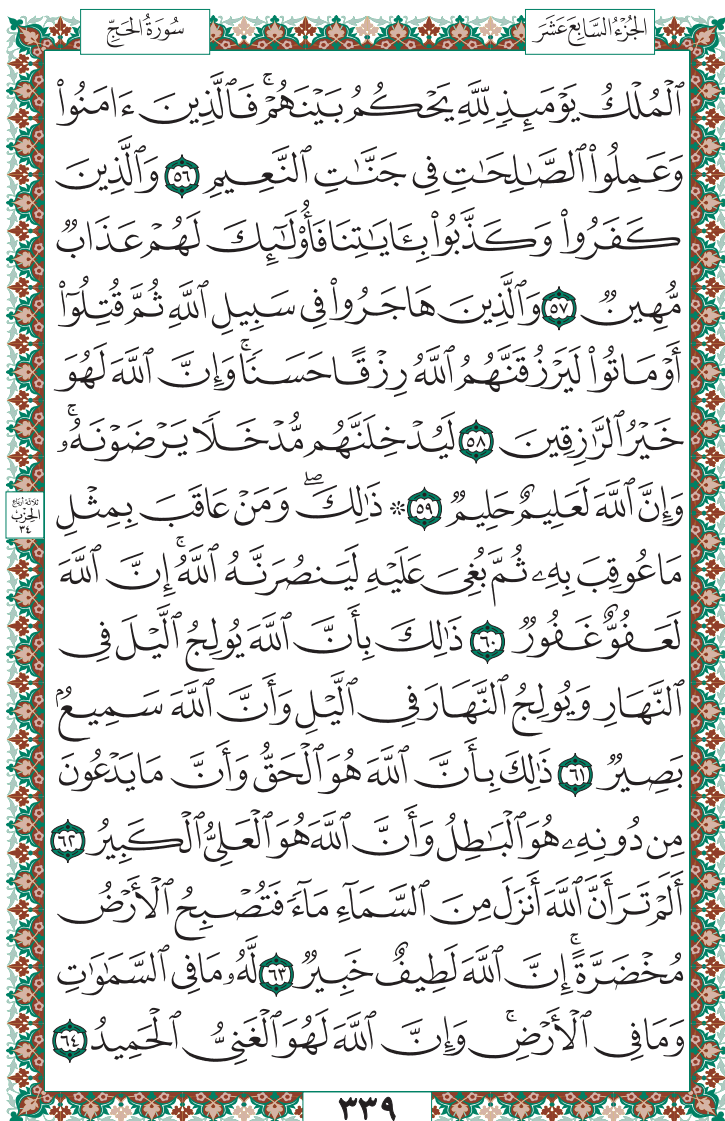 الجُزْءُ السَّابِعَ عَشَرَ
سُورَةُ الحَجِّ
ٱلْمُلْكُ يَوْمَئِذٍ لِّلَّهِ يَحْكُمُ بَيْنَهُمْۚ فَٱلَّذِينَ ءَامَنُوا۟
وَعَمِلُوا۟ ٱلصَّـٰلِحَـٰتِ فِى جَنَّـٰتِ ٱلنَّعِيمِ ٥٦ وَٱلَّذِينَ
كَفَرُوا۟ وَكَذَّبُوا۟ بِـَٔايَـٰتِنَا فَأُو۟لَـٰٓئِكَ لَهُمْ عَذَابٌ
مُّهِينٌ ٥٧ وَٱلَّذِينَ هَاجَرُوا۟ فِى سَبِيلِ ٱللَّهِ ثُمَّ قُتِلُوٓا۟
أَوْ مَاتُوا۟ لَيَرْزُقَنَّهُمُ ٱللَّهُ رِزْقًا حَسَنًاۚ وَإِنَّ ٱللَّهَ لَهُوَ
خَيْرُ ٱلرَّٰزِقِينَ ٥٨ لَيُدْخِلَنَّهُم مُّدْخَلًا يَرْضَوْنَهُۥۚ
وَإِنَّ ٱللَّهَ لَعَلِيمٌ حَلِيمٌ ٥٩ ۞ ذَٰلِكَۖ وَمَنْ عَاقَبَ بِمِثْلِ
ثلاثة أرباع
الحزب
٣٤
مَا عُوقِبَ بِهِۦ ثُمَّ بُغِىَ عَلَيْهِ لَيَنصُرَنَّهُ ٱللَّهُۚ إِنَّ ٱللَّهَ
لَعَفُوٌّ غَفُورٌ ٦٠ ذَٰلِكَ بِأَنَّ ٱللَّهَ يُولِجُ ٱلَّيْلَ فِى
ٱلنَّهَارِ وَيُولِجُ ٱلنَّهَارَ فِى ٱلَّيْلِ وَأَنَّ ٱللَّهَ سَمِيعٌۢ
بَصِيرٌ ٦١ ذَٰلِكَ بِأَنَّ ٱللَّهَ هُوَ ٱلْحَقُّ وَأَنَّ مَا يَدْعُونَ
مِن دُونِهِۦ هُوَ ٱلْبَـٰطِلُ وَأَنَّ ٱللَّهَ هُوَ ٱلْعَلِىُّ ٱلْكَبِيرُ ٦٢
أَلَمْ تَرَ أَنَّ ٱللَّهَ أَنزَلَ مِنَ ٱلسَّمَآءِ مَآءً فَتُصْبِحُ ٱلْأَرْضُ
مُخْضَرَّةًۗ إِنَّ ٱللَّهَ لَطِيفٌ خَبِيرٌ ٦٣ لَّهُۥ مَا فِى ٱلسَّمَـٰوَٰتِ
وَمَا فِى ٱلْأَرْضِۚ وَإِنَّ ٱللَّهَ لَهُوَ ٱلْغَنِىُّ ٱلْحَمِيدُ ٦٤
٣٣٩